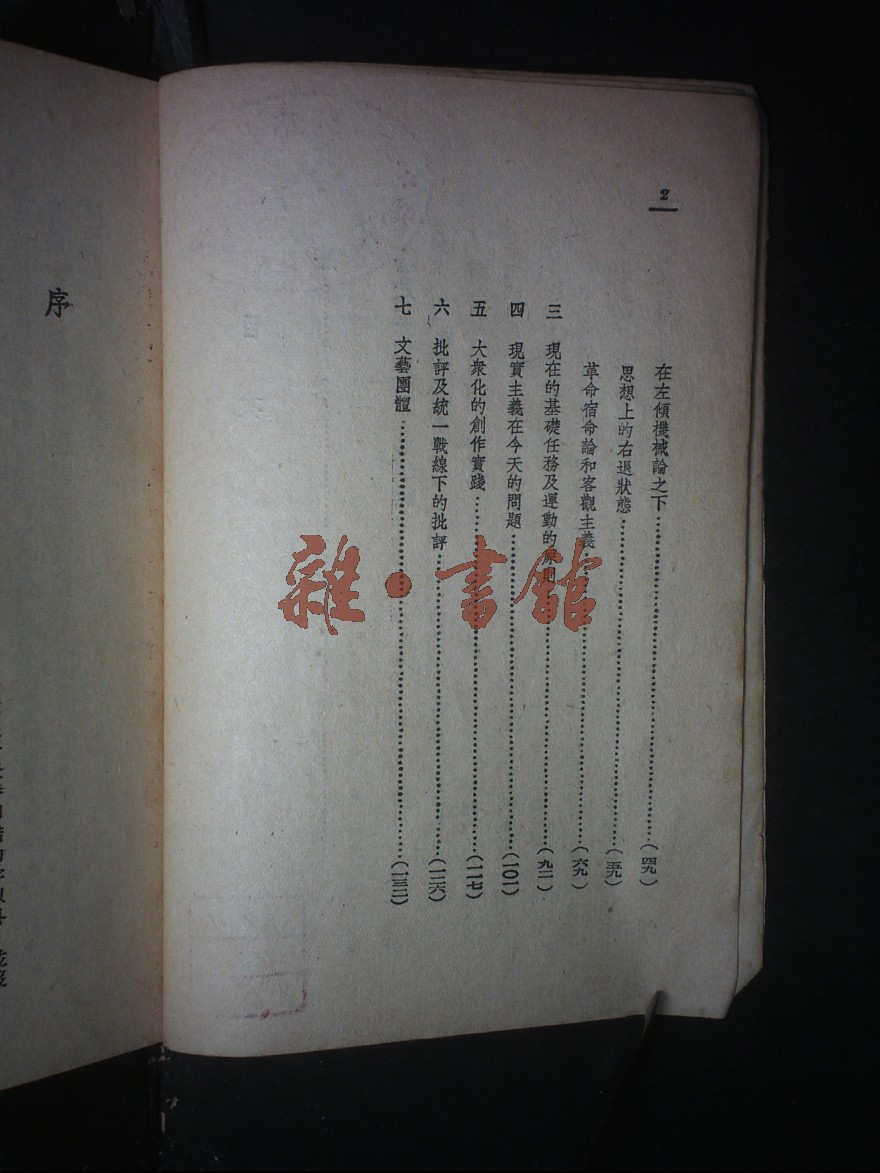 2
在左傾機械論之下……(四九)
思想上的右退狀態……(五九)
革命宿命論和客觀主義……(六九)
三 現在的基礎任務及運動的原則……(九二)
四 現實主義在今天的問題……(一〇一)
五 大衆化的創作實踐……(一一七)
六 批評及統一戰線下的批評……(一二六)
七 文藝團體……(一三二)
序
雜·書館